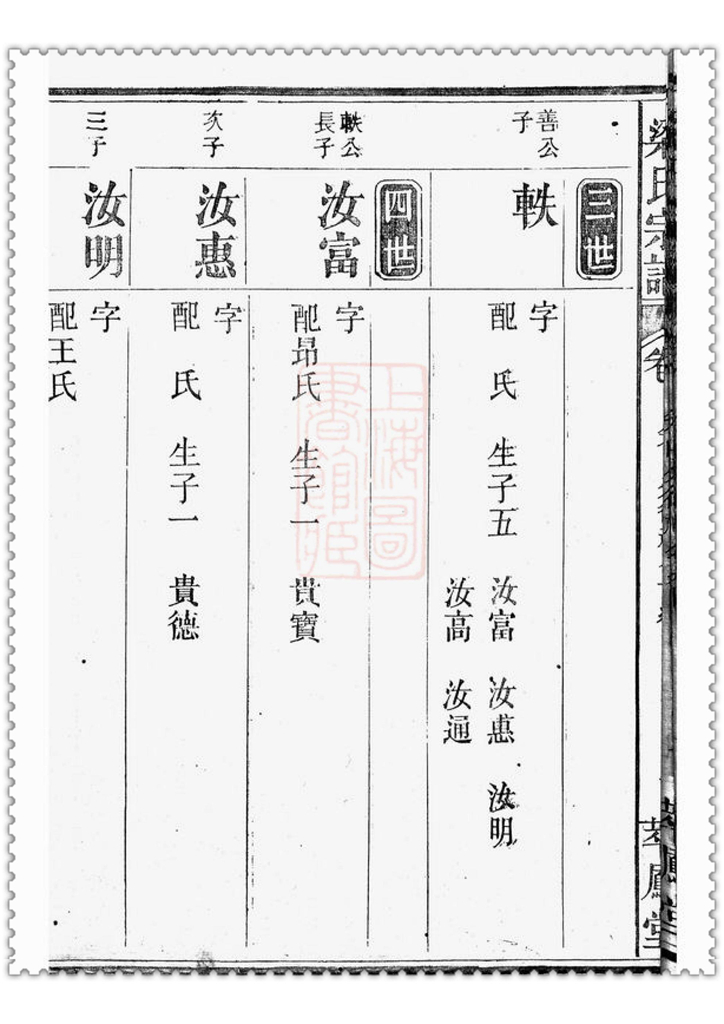 梁氏宗譜
卷
萃鳳堂
三世
善公
子
軼
字
配 氏 生子五 汝富 汝惠 汝明
汝高 汝通
四世
軼公
長子
汝富
字
配昂氏 生子一 貴寶
次子
汝惠
字
配 氏 生子一 貴德
三子
汝明
字
配王氏
上海圖
書館